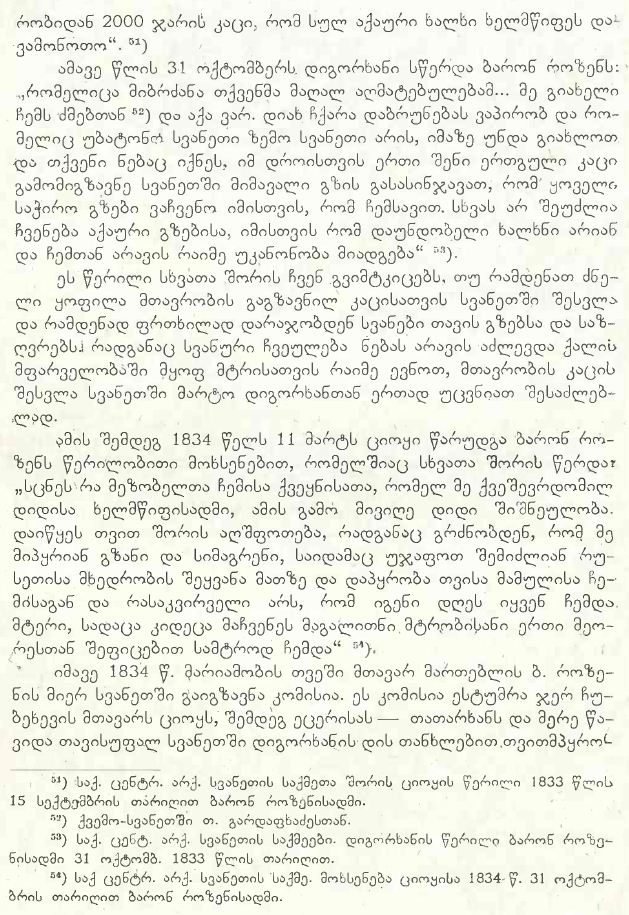 რობიდან 2000 ჯარის კაცი, რომ სულ აქაური ხალხი ხელმწიფეს და-
ვამონოთო“. ⁵¹)
ამავე წლის 31 ოქტომბერს დიგორხანი სწერდა ბარონ როზენს:
„რომელიცა მიბრძანა თქვენმა მაღალ აღმატებულებამ... მე გიახელი
ჩემს ძმებთან ⁵²) და აქა ვარ. დიახ ჩქარა დაბრუნებას ვაპირობ და რო-
მელიც უბატონო სვანეთი ზემო სვანეთი არის, იმაზე უნდა გიახლოთ
და თქვენი ნებაც იქნეს, იმ დროისთვის ერთი შენი ერთგული კაცი
გამომიგზავნე სვანეთში მიმავალი გზის გასასინჯავათ, რომ ყოველი
საჭირო გზები ვაჩვენო იმისთვის, რომ ჩემსავით. სხვას არ შეუძლია
ჩვენება აქაური გზებისა, იმისთვის რომ დაუნდობელი ხალხნი არიან
და ჩემთან არავის რაიმე უკანონობა მიადგება“ ⁵³).
ეს წერილი სხვათა შორის ჩვენ გვიმტკიცებს, თუ რამდენათ ძნე-
ლი ყოფილა მთავრობის გაგზავნილ კაცისათვის სვანეთში შესვლა
და რამდენად ფრთხილად დარაჯობდენ სვანები თავის გზებსა და საზ-
ღვრებს. რადგანაც სვანური ჩვეულება ნებას არავის აძლევდა ქალის
მფარველობაში მყოფ მტრისათვის რაიმე ევნოთ, მთავრობის კაცის
შესვლა სვანეთში მარტო დიგორხანთან ერთად უცვნიათ შესაძლებ-
ლად.
ამის შემდეგ 1834 წელს 11 მარტს ციოყი წარუდგა ბარონ რო-
ზენს წერილობითი მოხსენებით, რომელშიაც სხვათა შორის წერდა:
„სცნეს რა მეზობელთა ჩემისა ქვეყნისათა, რომელ მე ქვეშევრდომილ
დიდისა ხელმწიფისადმი, ამის გამო მივიღე დიდი შიშნეულობა.
დაიწყეს თვით შორის აღშფოთება, რადგანაც გრძნობდენ, რომ მე
მიპყრიან გზანი და სიმაგრენი, საიდამაც უჯაფოთ შემიძლიან რუ-
სეთისა მხედრობის შეყვანა მათზე და დაპყრობა თვისა მამულისა ჩე-
მისაგან და რასაკვირველი არს, რომ იგენი დღეს იყვენ ჩემდა
მტერი, სადაცა კიდეცა მაჩვენეს მაგალითნი მტრობისანი ერთი მეო-
რესთან შეფიცებით სამტროდ ჩემდა“ ⁵⁴).
იმავე 1834 წ. მარიამობის თვეში მთავარ მართებლის ბ. როზე-
ნის მიერ სვანეთში გაიგზავნა კომისია. ეს კომისია ესტუმრა ჯერ ჩუ-
ბეხევის მთავარს ციოყს, შემდეგ ეცერისას — თათარხანს და მერე წა-
ვიდა თავისუფალ სვანეთში დიგორხანის დის თანხლებით. თვითმპყრობ-
⁵¹) საქ. ცენტრ. არქ. სვანეთის საქმეთა შორის ციოყის წერილი 1833 წლის
15 სექტემბრის თარიღით ბარონ როზენისადმი.
⁵²) ქვემო-სვანეთში თ. გარდაფხაძესთან.
⁵³) საქ. ცენტ. არქ. სვანეთის საქმეები. დიგორხანის წერილი ბარონ როზე-
ნისადმი 31 ოქტომბ. 1833 წლის თარიღით.
⁵⁴) საქ ცენტრ. არქ. სვანეთის საქმე. მოხსენება ციოყისა 1834 წ. 31 ოქტომ-
ბრის თარიღით ბარონ როზენისადმი.